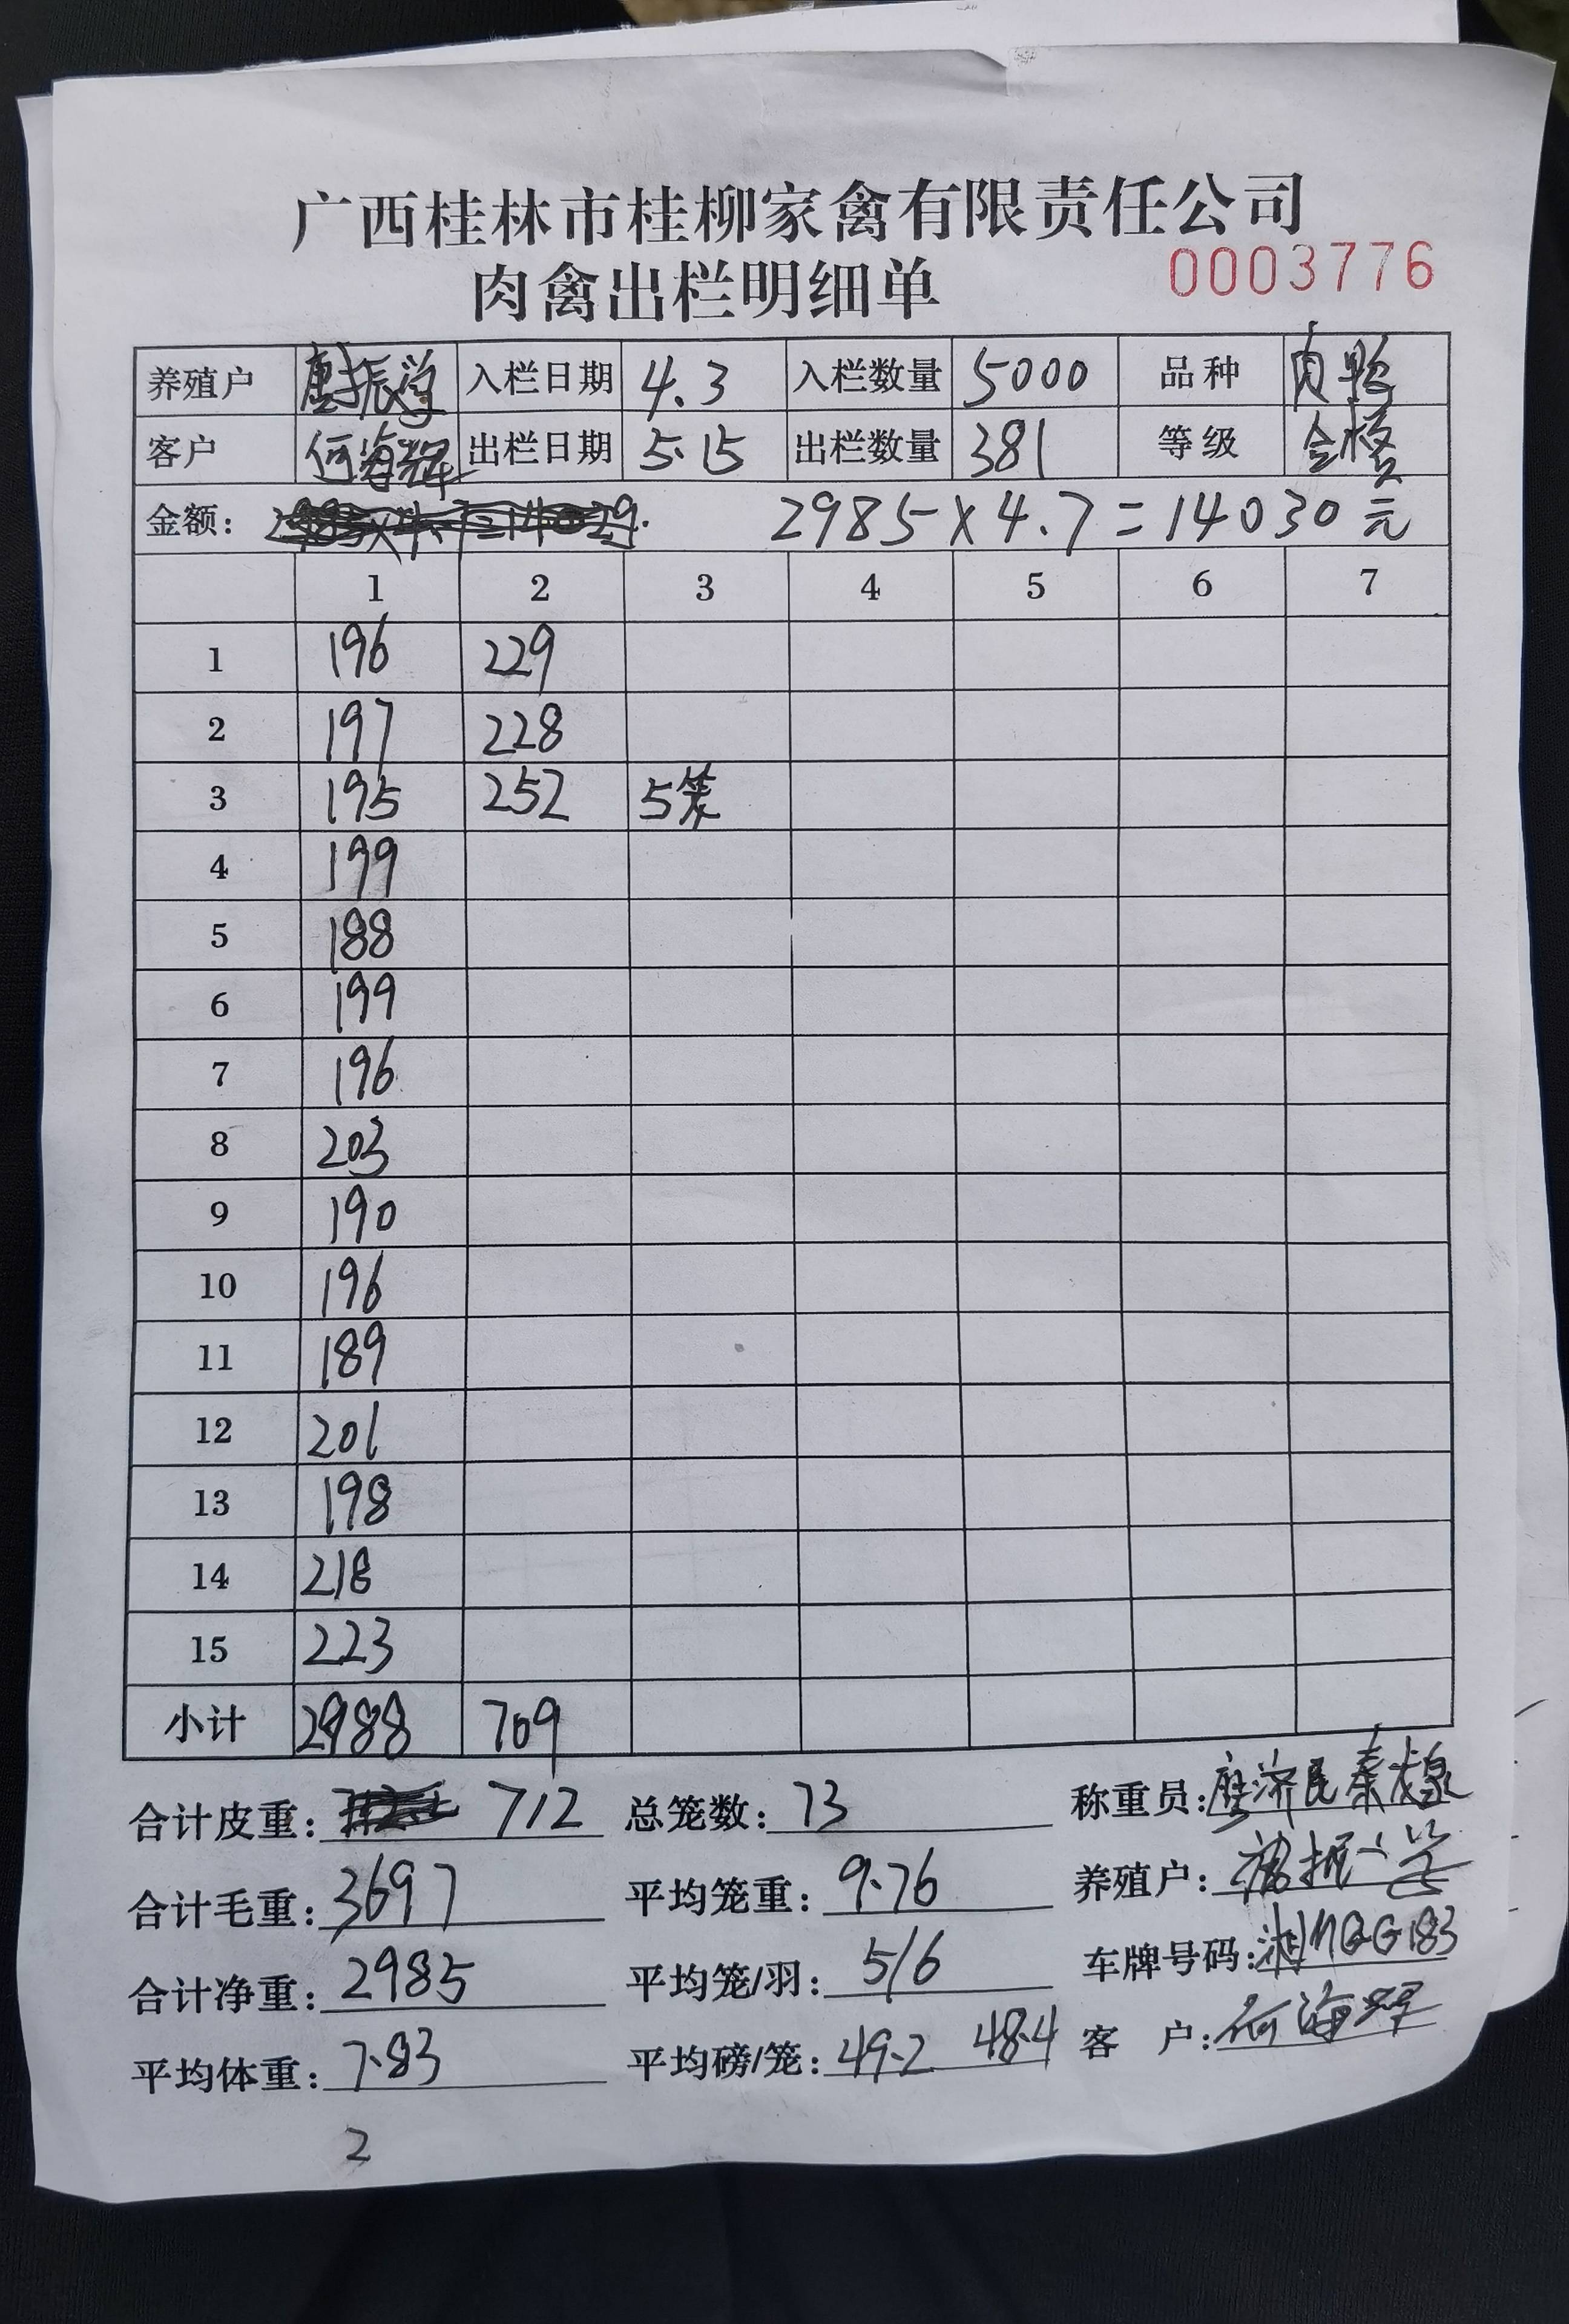 广西桂林市桂柳家禽有限责任公司
肉禽出栏明细单 0003776
养殖户 唐振 入栏日期 4.3 入栏数量 5000 品种 肉鸭
客户 何海辉 出栏日期 5.15 出栏数量 381 等级 合格
金额: 2985×4.7=14030元
1 2 3 4 5 6 7
1 196 229
2 197 228
3 195 252 5笼
4 199
5 188
6 199
7 196
8 203
9 190
10 196
11 189
12 201
13 198
14 218
15 223
小计 2988 709
合计皮重: 712 总笼数: 73 称重员:
合计毛重: 3697 平均笼重: 9.76 养殖户:
合计净重: 2985 平均笼/羽: 5/6 车牌号码:
平均体重: 7.83 平均磅/笼: 49.2 48.4 客 户: 何海辉
2